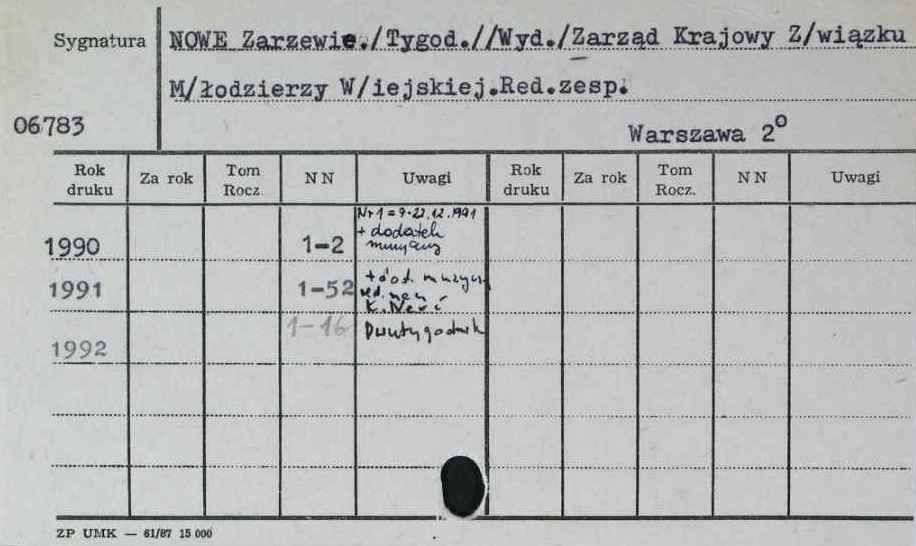 Sygnatura
NOWE Zarzewie./Tygod.//Wyd./Zarząd Krajowy Z/wiązku
M/łodzierzy W/iejskiej.Red.zesp.
06783
Warszawa 2°
Rok druku Za rok Tom Rocz. NN Uwagi Rok druku Za rok Tom Rocz. NN Uwagi
Nr 1 = 9-22.12.1991
+ dodatek
1990 1-2
1991 1-52 + dod. muzycz.
K.
1-16 Dwutygodnik
1992
ZP UMK — 61/87 15 000